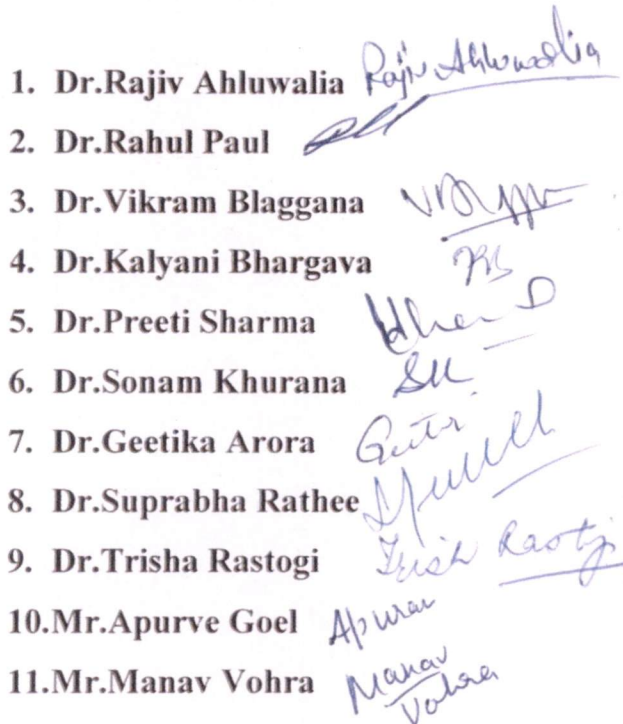 1. Dr.Rajiv Ahluwalia Rajiv Ahluwalia
2. Dr.Rahul Paul
3. Dr.Vikram Blaggana
4. Dr.Kalyani Bhargava
5. Dr.Preeti Sharma
6. Dr.Sonam Khurana SK
7. Dr.Geetika Arora
8. Dr.Suprabha Rathee
9. Dr.Trisha Rastogi
10.Mr.Apurve Goel
11.Mr.Manav Vohra Manav
Vohra